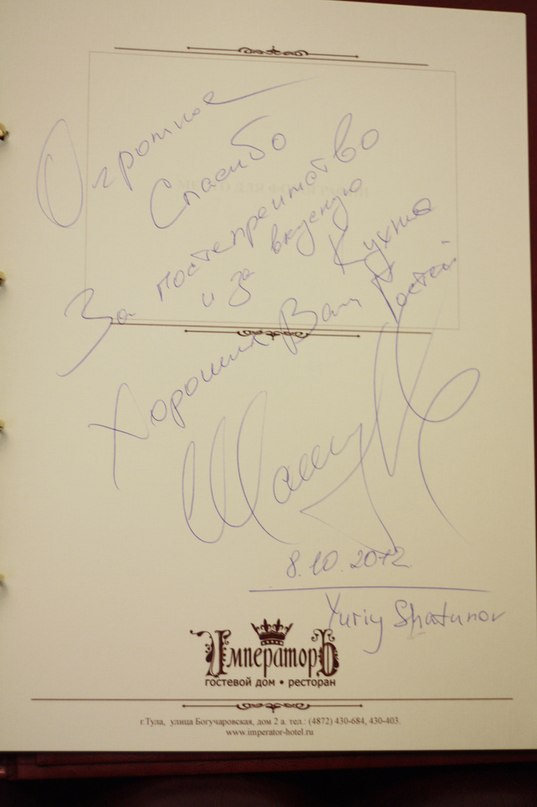 Огромное
Спасибо
За гостеприимство
и за вкусную
Кухню
Хороших Вам Гостей
8.10.2012
Yuriy Shatunov
Императоръ
гостевой дом • ресторан
г.Тула, улица Богучаровская, дом 2 а. тел.: (4872) 430-684, 430-403.
www.imperator-hotel.ru